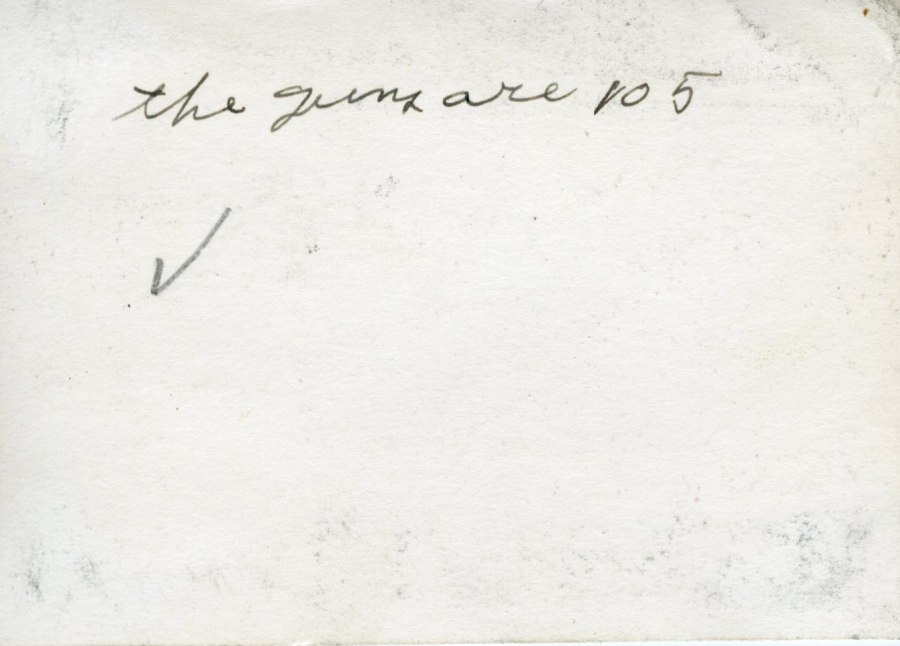 the guns are 105